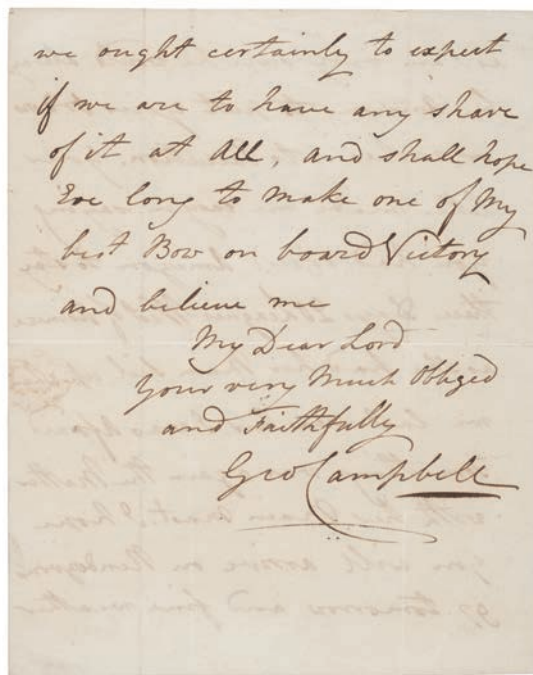 we ought certainly to expect
if we are to have any share
of it at all, and shall hope
Ere long to make one of My
best Bow on board Victory
and believe me
My Dear Lord
your very Much Obliged
and Faithfully
Geo Campbell